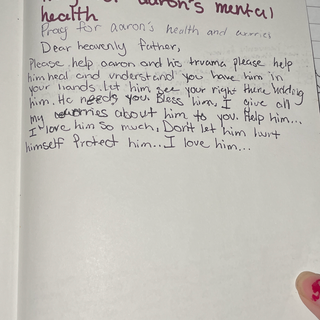 of aaron's mental
health
Pray for aaron's health and worries
Dear heavenly father,
Please help aaron and his truama please help
him heal and understand you have him in
your hands. Let him see your right there holding
him. He needs you. Bless him. I give all
my worries about him to you. Help him...
I love him so much. Don't let him hurt
himself Protect him.. I love him...